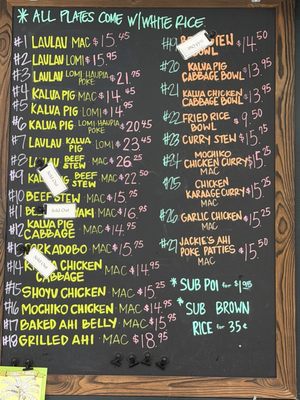 * ALL PLATES COME W/WHITE RICE.
#1 LAULAU MAC $15.45
#2 LAULAU LOMI $15.95
#3 LAULAU LOMI HAUPIA POKE $21.75
#4 KALVA PIG MAC $14.45
#5 KALVA PIG LOMI $14.95
#6 KALVA PIG LOMI HAUPIA POKE $20.45
#7 LAULAU KALVA PIG LOMI $23.45
#8 BEEF STEW MAC $26.25
#9 PIG BEEF STEW MAC $22.50
#10 BEEF STEW MAC $15.75
#11 MAC $16.95
#12 KALVA PIG CABBAGE MAC $14.95
ADOBO MAC $15.75
#14 CHICKEN CABBAGE MAC $14.95
#15 SHOYU CHICKEN MAC $15.25
#16 MOCHIKO CHICKEN MAC $14.95
#17 BAKED AHI BELLY MAC $15.95
#18 GRILLED AHI MAC $18.95
#19 STEW BOWL $14.50
#20 KALVA PIG CABBAGE BOWL $13.95
#21 KALVA CHICKEN CABBAGE BOWL $13.95
#22 FRIED RICE BOWL $9.50
#23 CURRY STEW $15.95
#24 MOCHIKO CHICKEN CURRY MAC $15.25
#25 CHICKEN KARAAGE CURRY MAC $15.25
#26 GARLIC CHICKEN MAC $15.25
#27 JACKIE'S AHI POKE PATTIES MAC $15.50
* SUB POI for $1.95
* SUB BROWN
RICE for 35¢